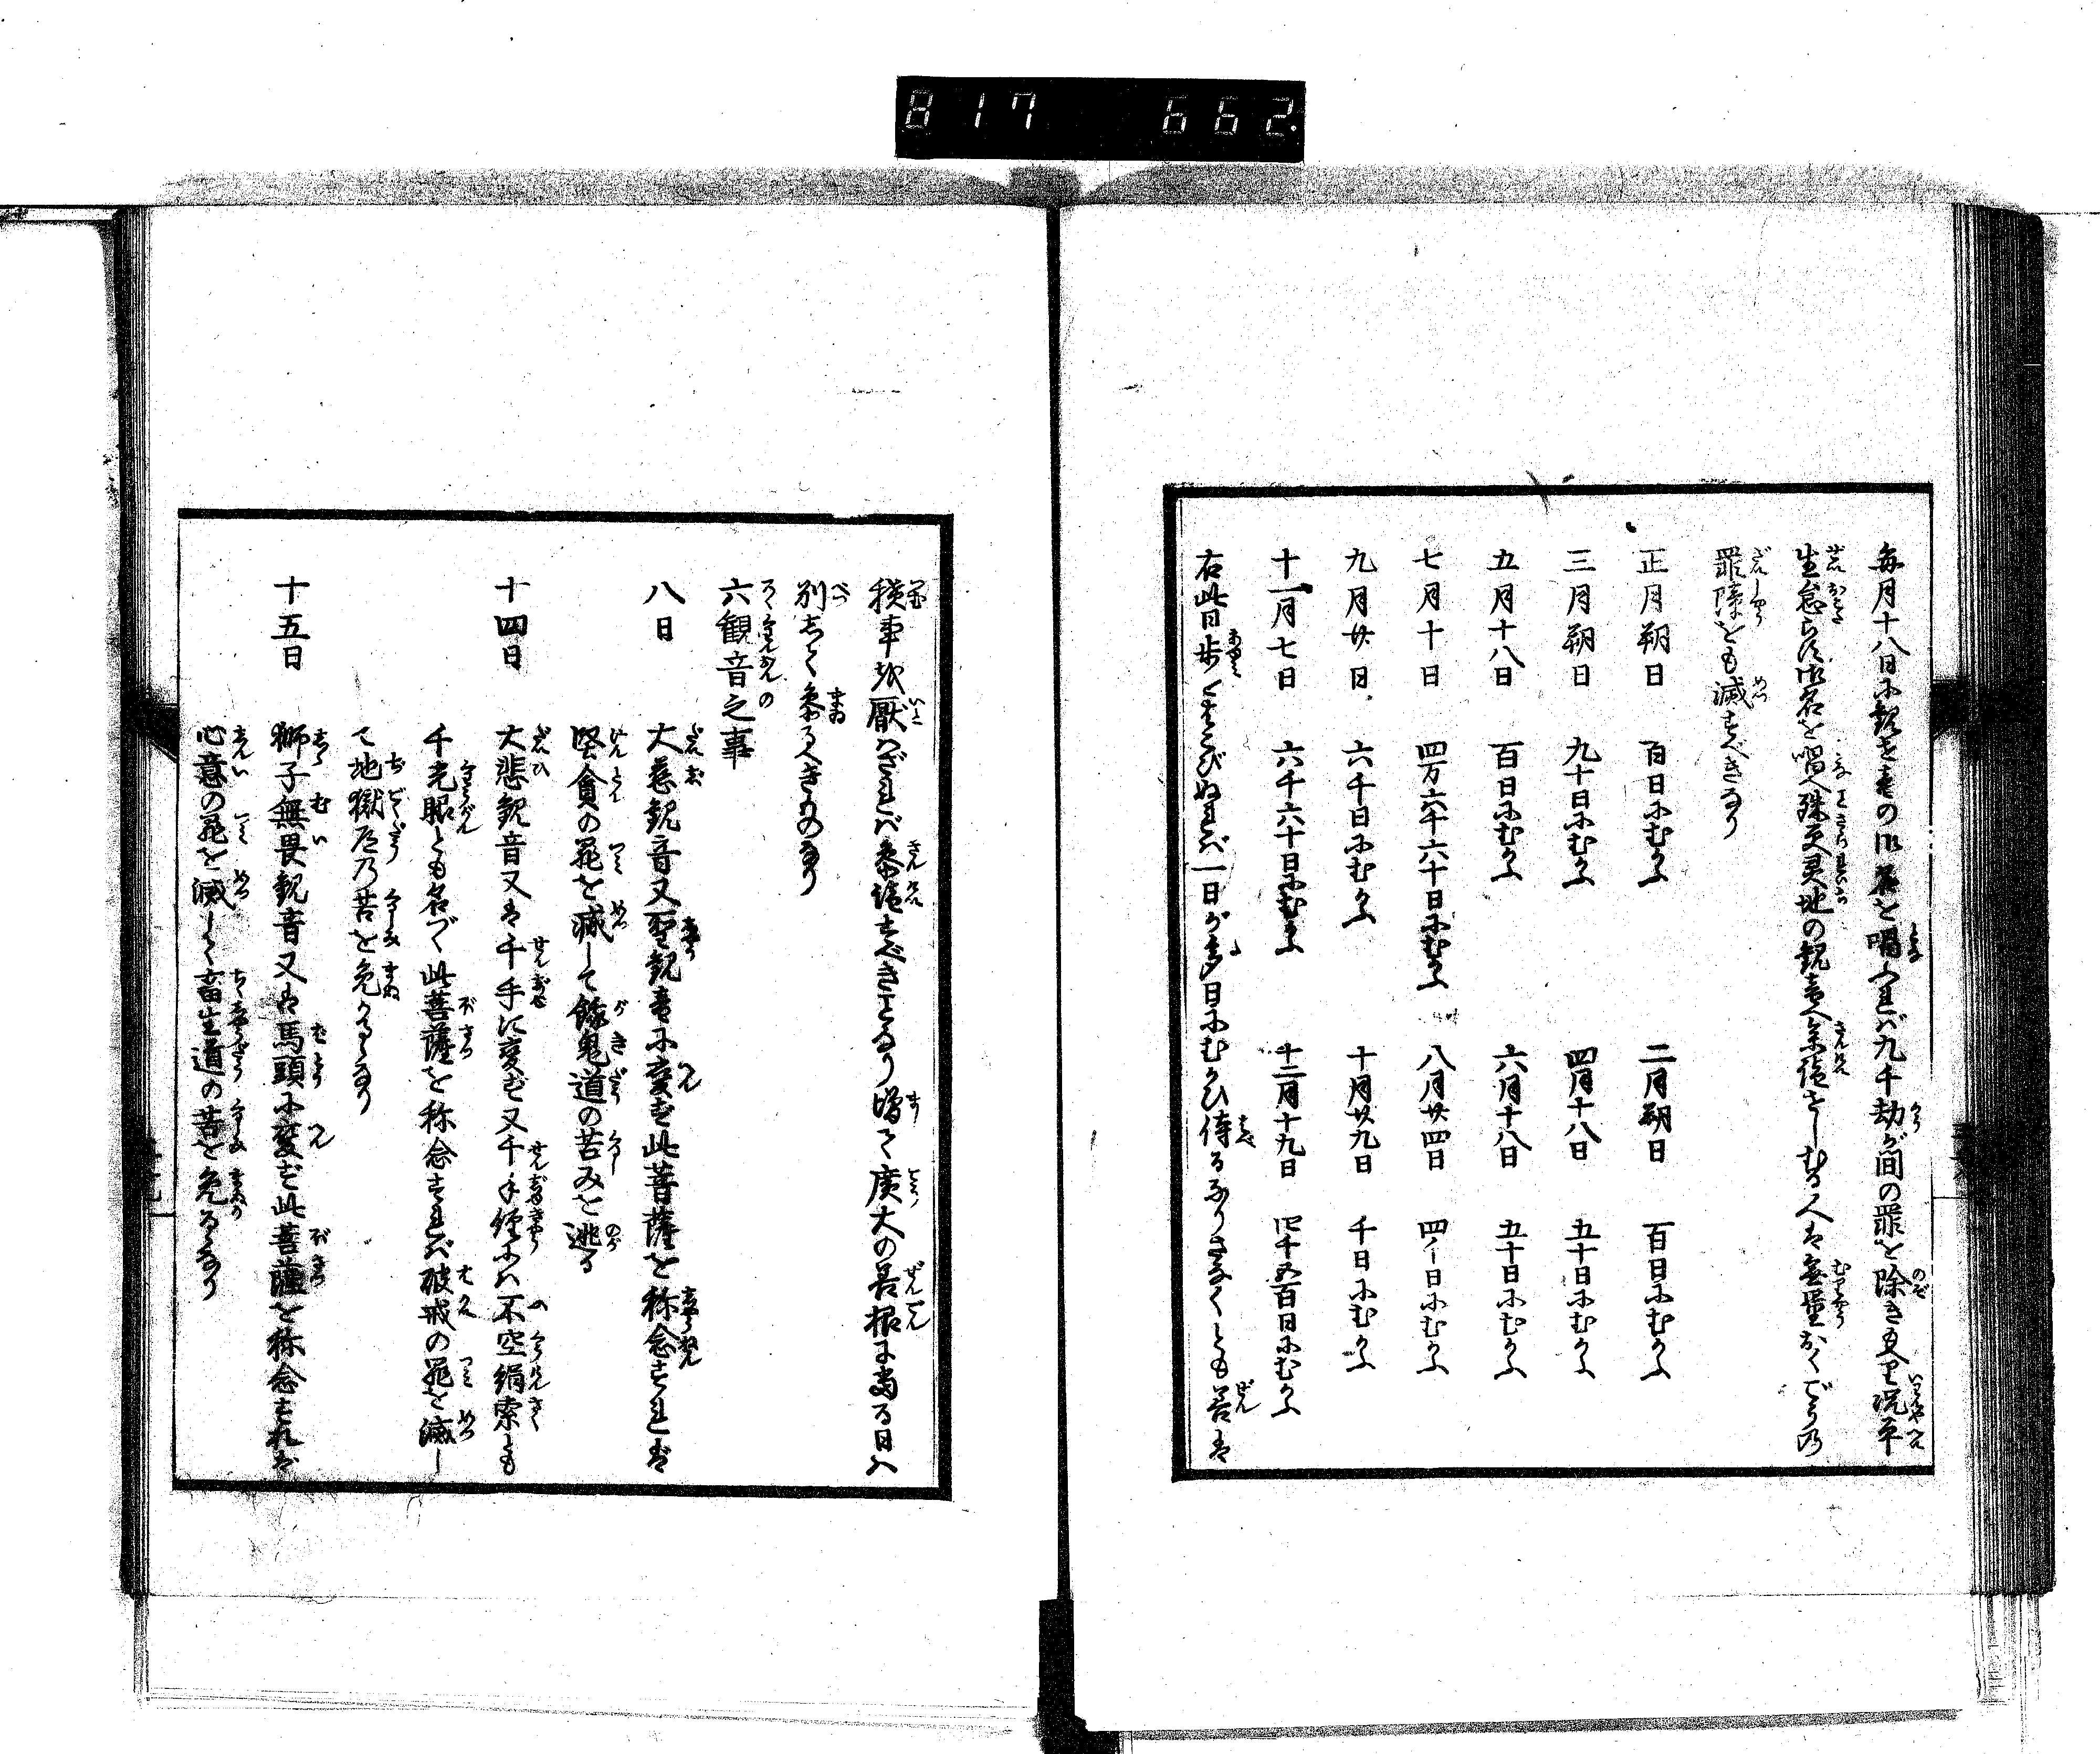 817 662.
毎月十八日に観音の御名を唱ふれバ九千劫が間の罪を除き又況乎
生怠らず御名を唱へ殊更霊地の観音へ参詣をしむる人は無量おくごうの
罪障をも滅すべきなり
正月朔日 百日にむかふ 二月朔日 百日にむかふ
三月朔日 九十日にむかふ 四月十八日 五十日にむかふ
五月十八日 百日にむかふ 六月十八日 五十日にむかふ
七月十日 四万六千六十日にむかふ 八月廿四日 四千日にむかふ
九月廿日 六千日にむかふ 十月廿九日 千日にむかふ
十一月七日 六千六十日にむかふ 十二月十九日 四千五百日にむかふ
右此日歩をはこびぬれバ一日が多日にむかひ侍るなりさなくとも善は
積事を厭ハざれバ参詣すべきことなり増て廣大の善根に当る日ハ
別して参るべきものなり
六観音之事
八日 大慈観音又聖観音に変ず此菩薩を称念すれば
慳貪の罪を滅して餓鬼道の苦みを逃る
十四日 大悲観音又は千手に変ず又千手経にハ不空絹索とも
千光眼とも名づく此菩薩を称念すれバ破戒の罪を滅し
て地獄道乃苦を免かるゝなり
十五日 獅子無畏観音又は馬頭に変ず此菩薩を称念すれば
心意の罪を滅して畜生道の苦を免るゝなり